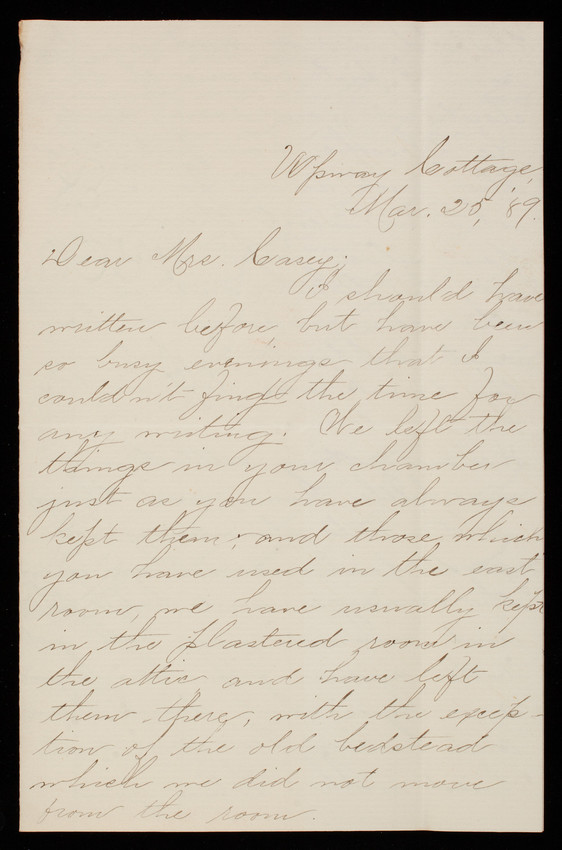 Cottage,
Mar. 25, '89.
Dear Mrs. Casey;
I should have
written before, but have been
so busy evenings that I
couldn't find the time for
any writing. We left the
things in your chamber
just as you have always
kept them; and those which
you have used in the east
room, we have usually kept
in the plastered room in
the attic and have left
them there, with the excep-
tion of the old bedstead
which we did not move
from the room.